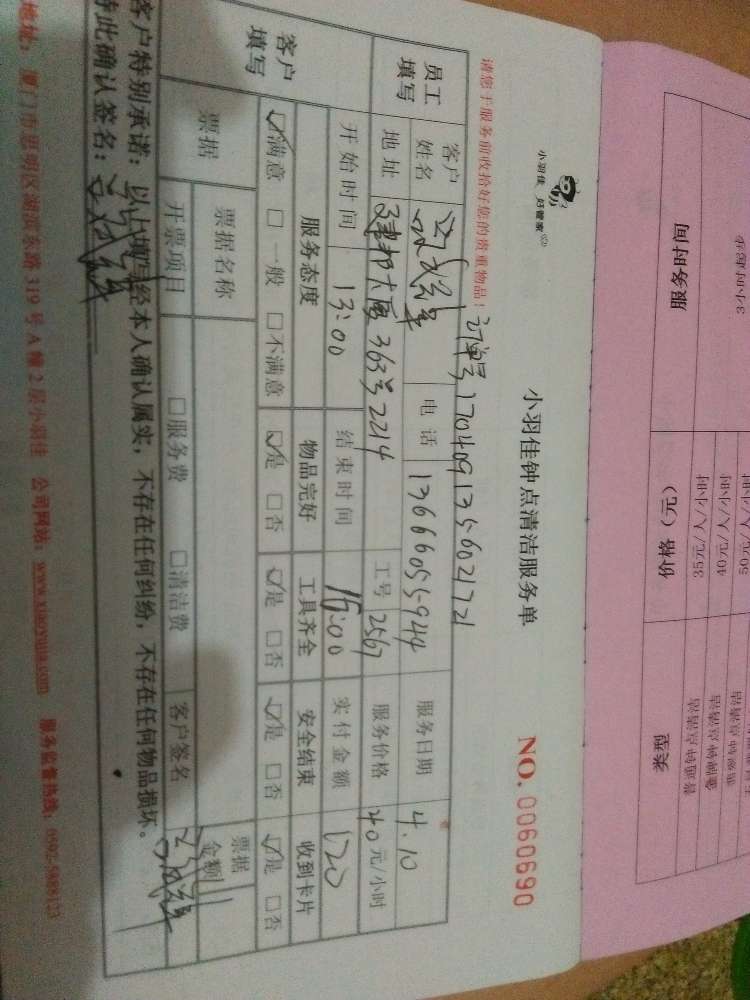 服务时间 价格（元） 类型
3小时起步 35元/人/小时 普通钟点清洁
40元/人/小时 金牌钟点清洁
50元/人/小时
小羽佳 好管家
小羽佳钟点清洁服务单
NO. 0060690
请您于服务前收拾好您的贵重物品！
订单号1704091356021721
员工填写
客户姓名 电话 13666055944 服务日期 4.10
地址 建邦大厦363号2214 工号 2567 服务价格 40元/小时
开始时间 13:00 结束时间 16:00 实付金额 120
客户填写
服务态度 物品完好 工具齐全 安全结束 收到卡片
☑满意 □一般 □不满意 ☑是 □否 ☑是 □否 ☑是 □否 ☑是 □否
票据 票据名称 票据金额
开票项目 □服务费 □清洁费 客户签名
客户特别承诺：以上填写经本人确认属实，不存在任何纠纷，不存在任何物品损坏。
特此确认签名：
地址：厦门市思明区湖滨东路319号A幢2层小羽佳 公司网站：www.xiaoyujia.com 服务监督热线：0592-5885123